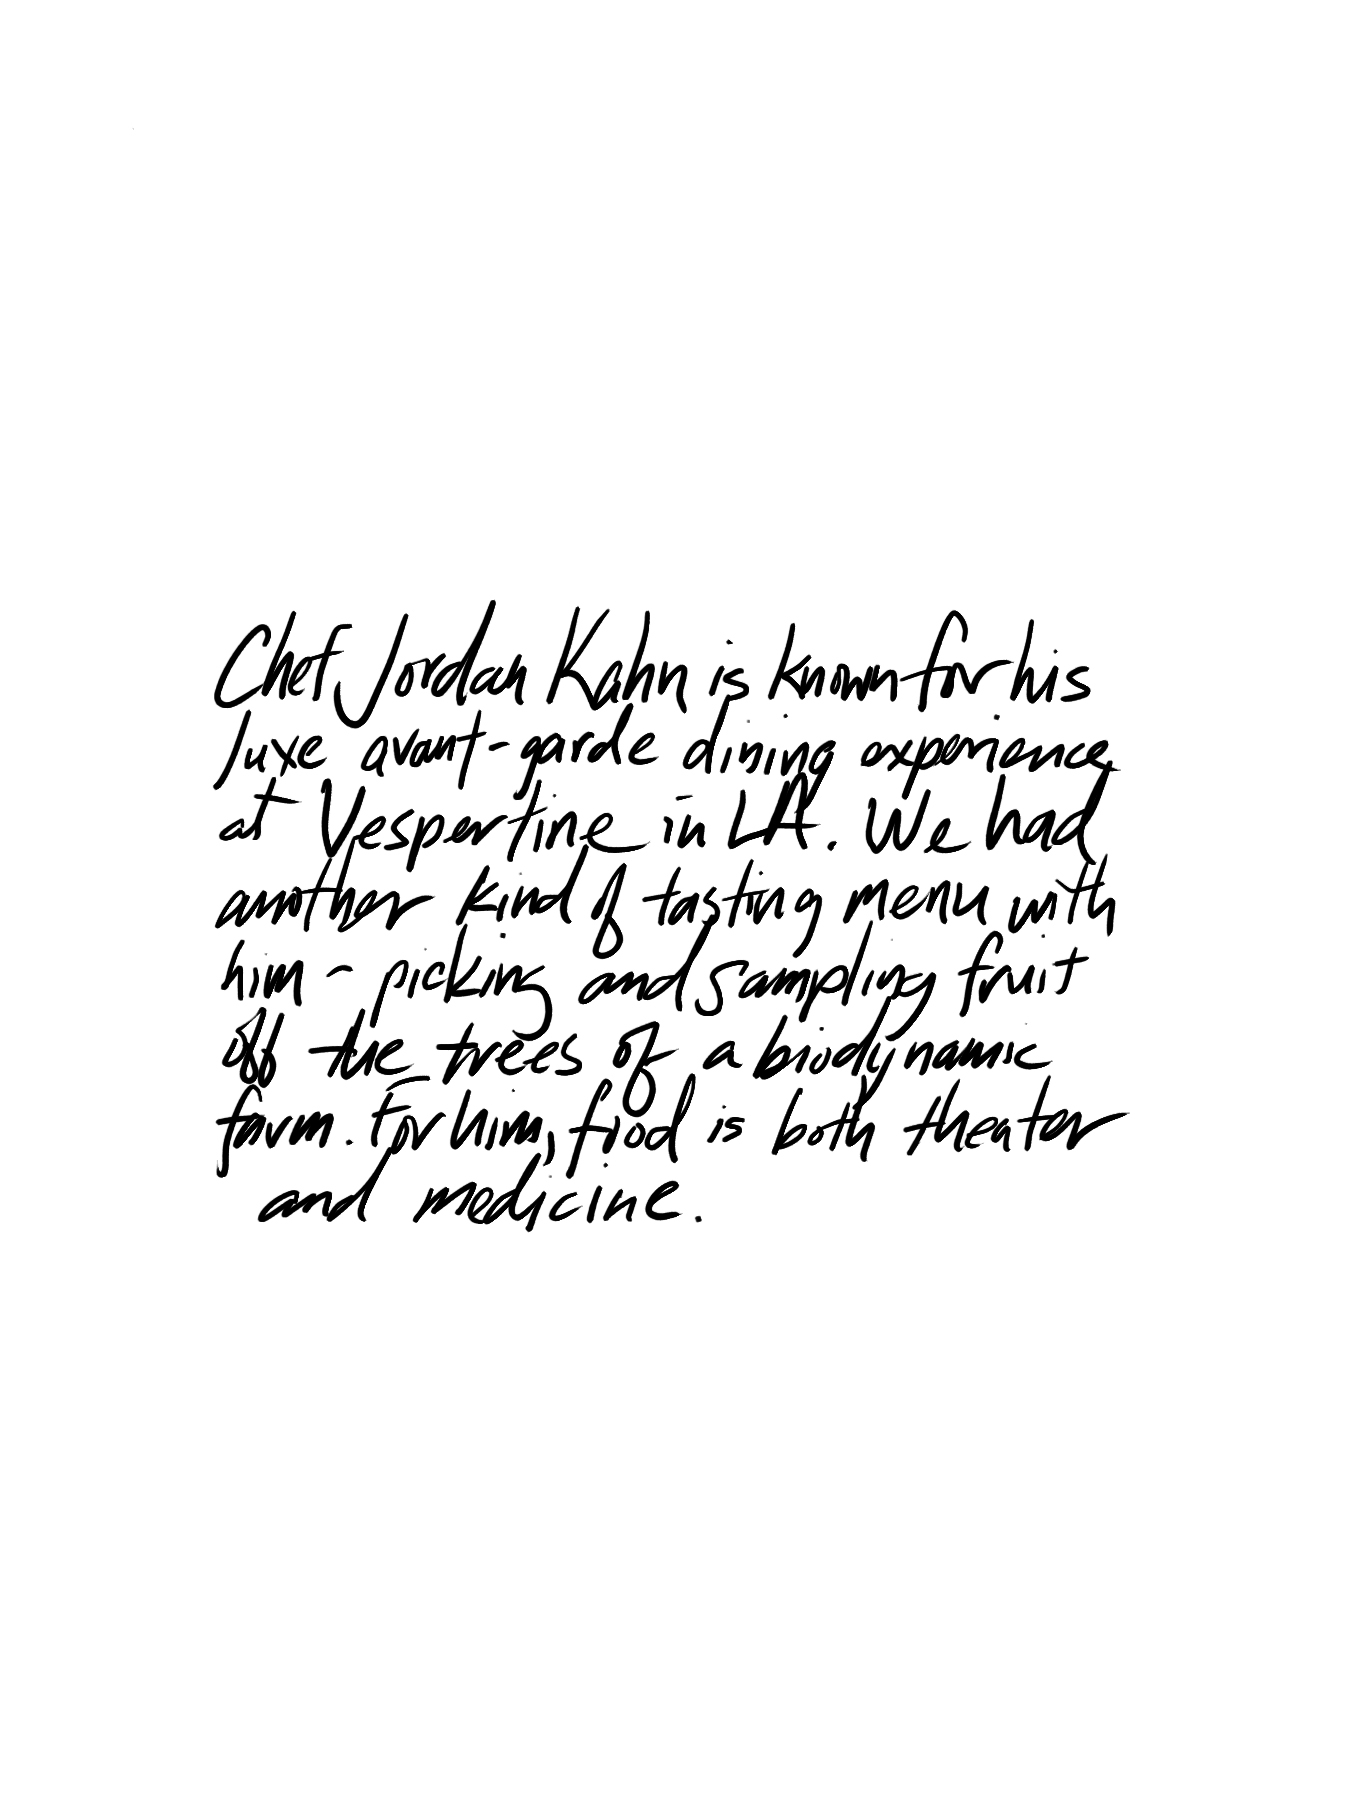 Chef Jordan Kahn is known for his
luxe avant-garde dining experience
at Vespertine in LA. We had
another kind of tasting menu with
him - picking and sampling fruit
off the trees of a biodynamic
farm. For him, food is both theater
and medicine.